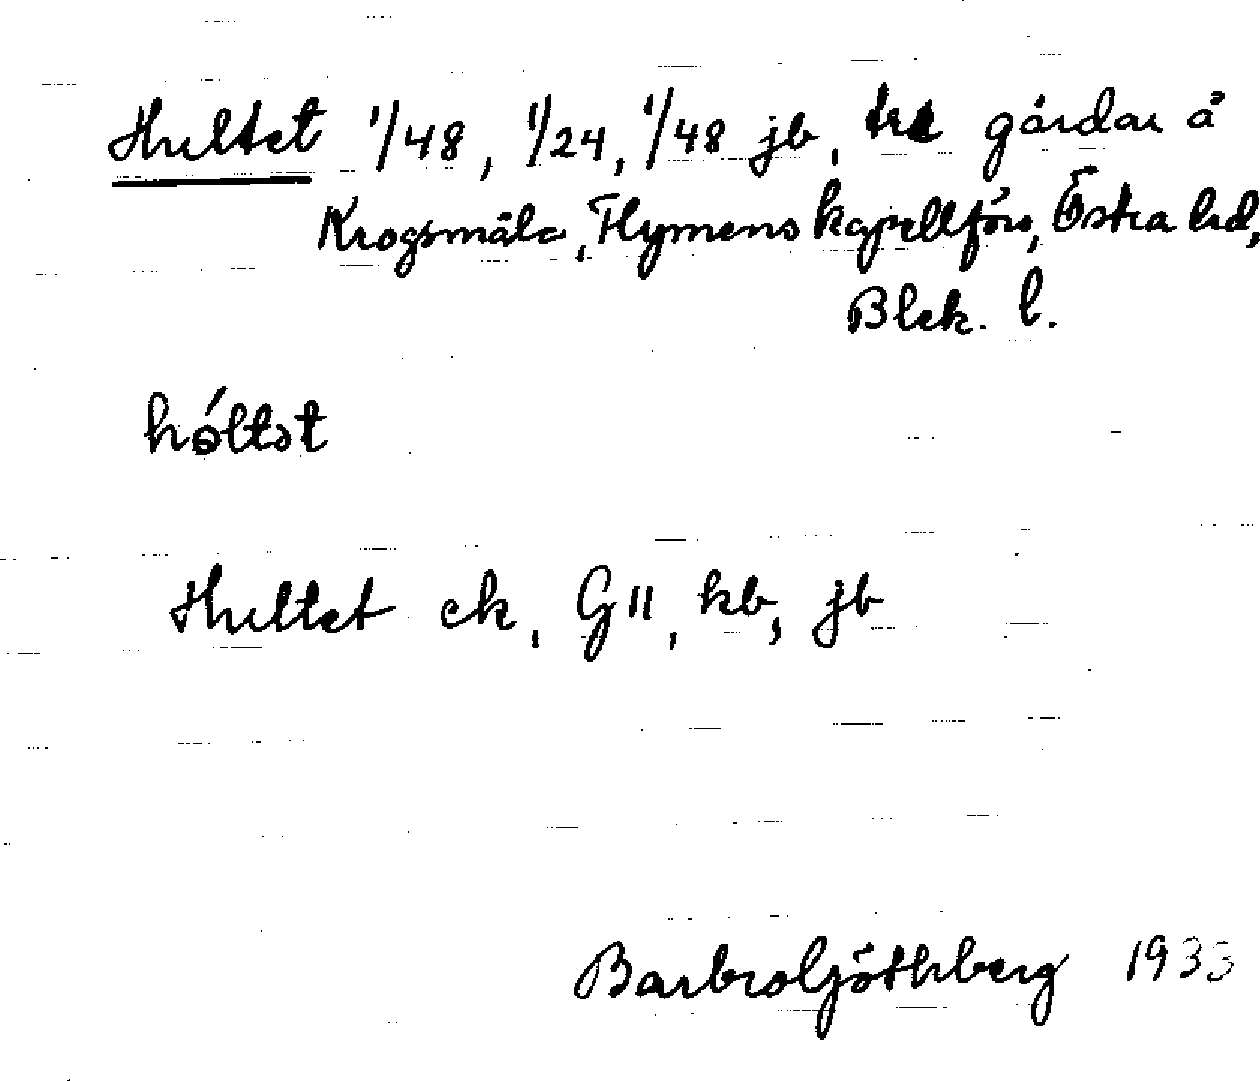 Hultet 1/48, 1/24, 1/48 jb, tre gårdar å
Krogsmåla, Flymens kapellförs, Östra hd,
Blek. l.
hóltət
Hultet ek, G II, kb, jb
Barbro Göthberg 1933